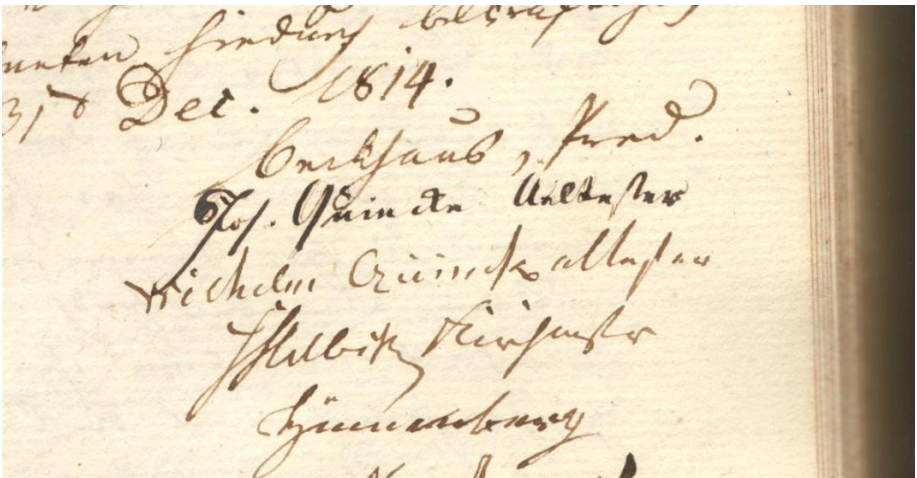 hiedurch
31t Dec. 1814.
Beckhaus, Pred.
Joh. Quincke Aeltester
Wilhelm Quincke altester
Kirchmstr
Hünnenberg